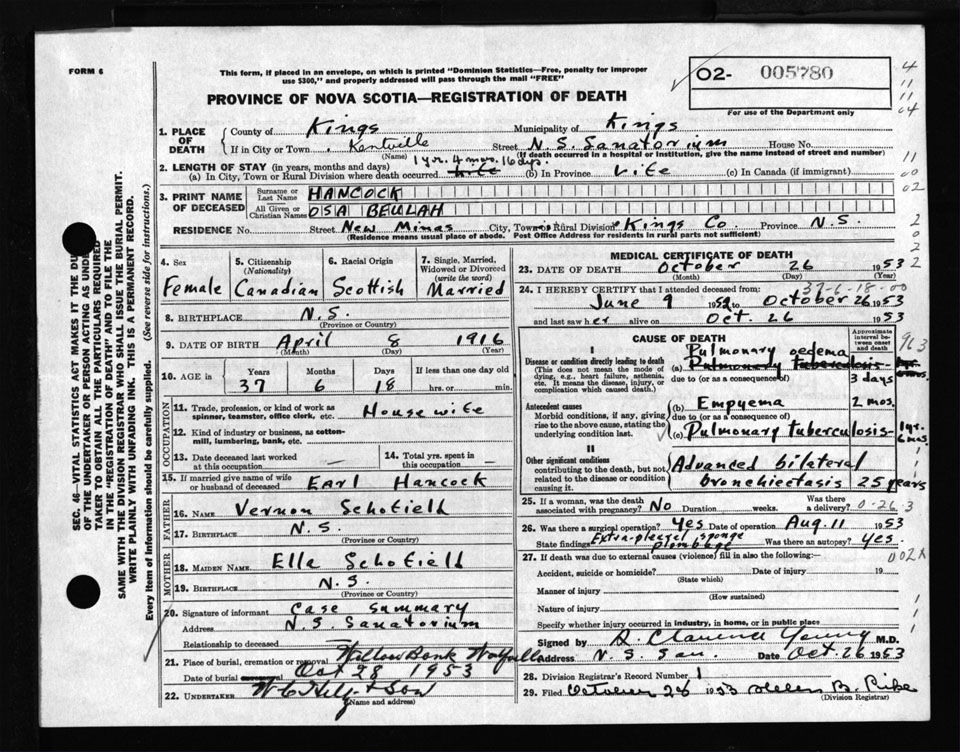 FORM 6
This form, if placed in an envelope, on which is printed "Dominion Statistics—Free, penalty for improper
use $300," and properly addressed will pass through the mail "FREE"
O2- 005780
For use of the Department only
PROVINCE OF NOVA SCOTIA—REGISTRATION OF DEATH
1. PLACE OF DEATH { County of Kings Municipality of Kings
If in City or Town Kentville (Name) Street N.S. Sanatorium House No.
(If death occurred in a hospital or institution, give the name instead of street and number)
2. LENGTH OF STAY (in years, months and days) 1 yr. 4 mos. 16 dys.
(a) In City, Town or Rural Division where death occurred life (b) In Province Life (c) In Canada (if immigrant)
3. PRINT NAME OF DECEASED { Surname or Last Name HANCOCK
All Given or Christian Names OSA BEULAH
RESIDENCE No. Street New Minas City, Town or Rural Division Kings Co. Province N.S.
(Residence means usual place of abode. Post Office Address for residents in rural parts not sufficient)
4. Sex Female
5. Citizenship (Nationality) Canadian
6. Racial Origin Scottish
7. Single, Married, Widowed or Divorced (write the word) Married
8. BIRTHPLACE N.S.
(Province or Country)
9. DATE OF BIRTH April 8 1916
(Month) (Day) (Year)
10. AGE in { Years 37 Months 6 Days 18 If less than one day old hrs. or min.
OCCUPATION
11. Trade, profession, or kind of work as spinner, teamster, office clerk, etc. Housewife
12. Kind of industry or business, as cotton-mill, lumbering, bank, etc.
13. Date deceased last worked at this occupation —
14. Total yrs. spent in this occupation —
15. If married give name of wife or husband of deceased Earl Hancock
FATHER
16. NAME Vernon Schofield
17. BIRTHPLACE N.S.
(Province or Country)
MOTHER
18. MAIDEN NAME Ella Schofield
19. BIRTHPLACE N.S.
(Province or Country)
20. Signature of informant Case Summary
Address N.S. Sanatorium
Relationship to deceased —
21. Place of burial, cremation or removal Willow Bank Wolfville
Date of burial Oct 28 1953
22. UNDERTAKER & Son
(Name and address)
MEDICAL CERTIFICATE OF DEATH
23. DATE OF DEATH October 26 1953
(Month) (Day) (Year)
37-6-18-00
24. I HEREBY CERTIFY that I attended deceased from:
June 9 1952 to October 26 1953
and last saw her alive on Oct. 26 1953
CAUSE OF DEATH
Approximate interval between onset and death
I
Disease or condition directly leading to death
(This does not mean the mode of dying, e.g., heart failure, asthenia, etc. It means the disease, injury, or complication which caused death.)
Pulmonary oedema
(a) Pulmonary tuberculosis
due to (or as a consequence of) 3 days
Antecedent causes
Morbid conditions, if any, giving rise to the above cause, stating the underlying condition last.
(b) Empyema 2 mos.
due to (or as a consequence of)
(c) Pulmonary tuberculosis 1 yr. 6 mos.
II
Other significant conditions
contributing to the death, but not related to the disease or condition causing it.
Advanced bilateral
bronchiectasis 25 years
25. If a woman, was the death associated with pregnancy? No Duration weeks. Was there a delivery? 0-26-3
26. Was there a surgical operation? Yes Date of operation Aug. 11 1953
State findings Extra-pleural sponge plombage Was there an autopsy? Yes.
27. If death was due to external causes (violence) fill in also the following:—
Accident, suicide or homicide? Date of injury 19
(State which)
Manner of injury
(How sustained)
Nature of injury
Specify whether injury occurred in industry, in home, or in public place
Signed by M.D.
Address N.S. San. Date Oct. 26 1953
28. Division Registrar's Record Number 1
29. Filed October 26 1953 Helen B.
(Division Registrar)
SEC. 46—VITAL STATISTICS ACT MAKES IT THE DU
OF THE UNDERTAKER OR PERSON ACTING AS UNDER
TAKER TO OBTAIN ALL THE PARTICULARS REQUIRED
IN THE "REGISTRATION OF DEATH" AND TO FILE THE
SAME WITH THE DIVISION REGISTRAR WHO SHALL ISSUE THE BURIAL PERMIT.
WRITE PLAINLY WITH UNFADING INK. THIS IS A PERMANENT RECORD.
Every item of information should be carefully supplied. (See reverse side for instructions.)